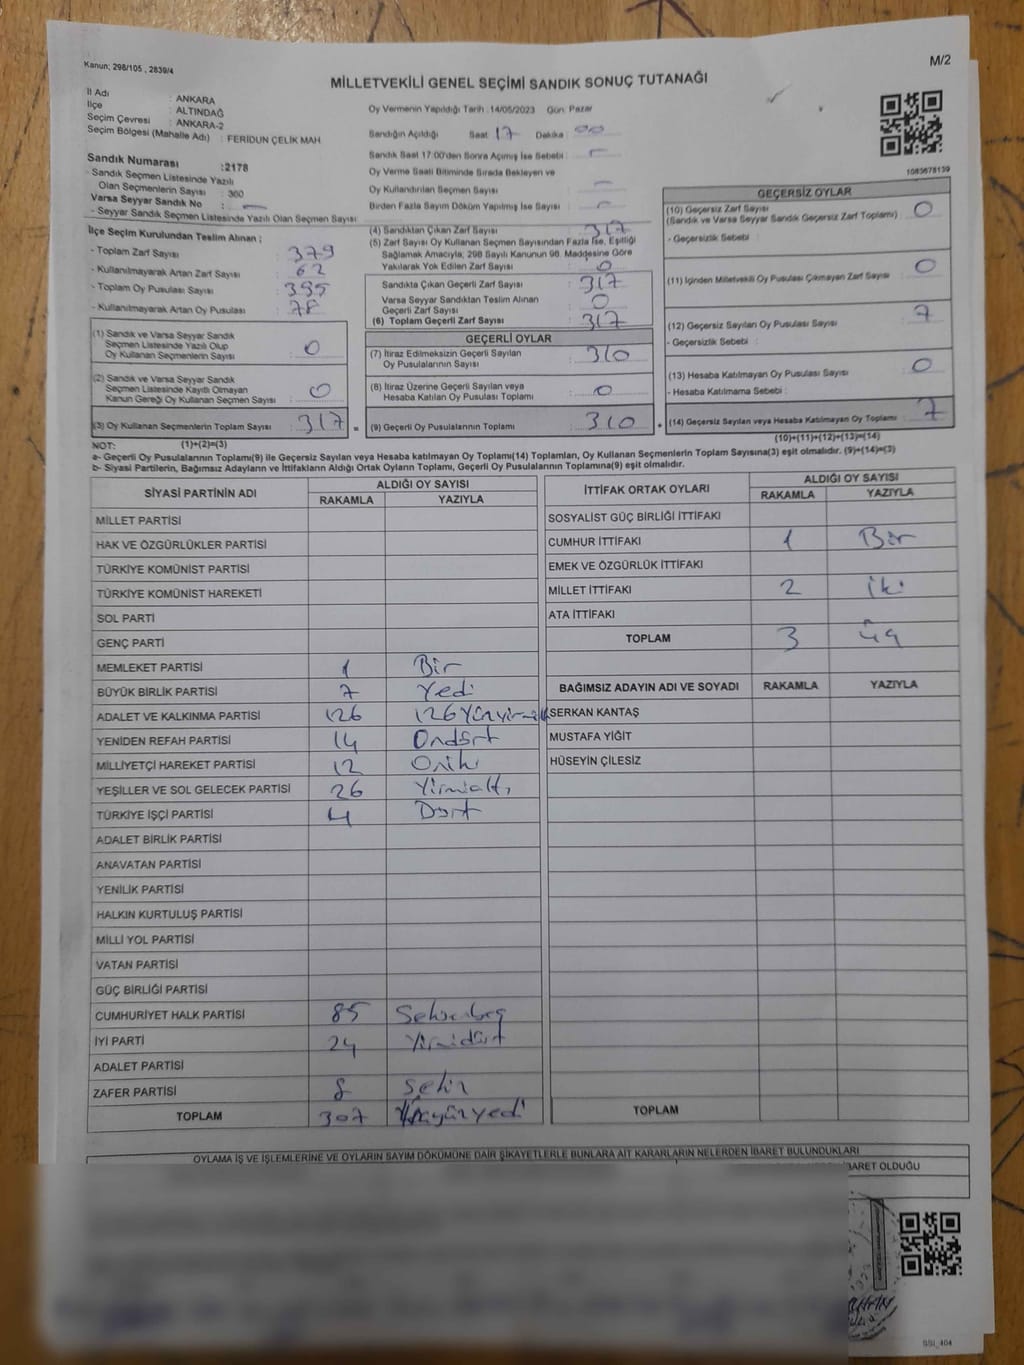 Kanun; 298/105 , 2839/4
M/2
MİLLETVEKİLİ GENEL SEÇİMİ SANDIK SONUÇ TUTANAĞI
İl Adı : ANKARA
İlçe : ALTINDAĞ
Seçim Çevresi : ANKARA-2
Seçim Bölgesi (Mahalle Adı) : FERİDUN ÇELİK MAH
Sandık Numarası :2178
- Sandık Seçmen Listesinde Yazılı
Olan Seçmenlerin Sayısı : 360
Varsa Seyyar Sandık No : -
- Seyyar Sandık Seçmen Listesinde Yazılı Olan Seçmen Sayısı
Oy Vermenin Yapıldığı Tarih :14/05/2023 Gün: Pazar
Sandığın Açıldığı Saat 17 Dakika : 00
Sandık Saat 17:00'den Sonra Açımış İse Sebebi : -
Oy Verme Saati Bitiminde Sırada Bekleyen ve
Oy Kullandırılan Seçmen Sayısı : -
Birden Fazla Sayım Döküm Yapılmış İse Sayısı : -
1085678139
İlçe Seçim Kurulundan Teslim Alınan ;
- Toplam Zarf Sayısı : 379
- Kullanılmayarak Artan Zarf Sayısı : 62
- Toplam Oy Pusulası Sayısı : 395
- Kullanılmayarak Artan Oy Pusulası : 78
(1) Sandık ve Varsa Seyyar Sandık
Seçmen Listesinde Yazılı Olup
Oy Kullanan Seçmenlerin Sayısı : 0
(2) Sandık ve Varsa Seyyar Sandık
Seçmen Listesinde Kayıtlı Olmayan
Kanun Gereği Oy Kullanan Seçmen Sayısı : 0
(3) Oy Kullanan Seçmenlerin Toplam Sayısı : 317 =
(4) Sandıktan Çıkan Zarf Sayısı : 317
(5) Zarf Sayısı Oy Kullanan Seçmen Sayısından Fazla İse, Eşitliği
Sağlamak Amacıyla, 298 Sayılı Kanunun 98. Maddesine Göre
Yakılarak Yok Edilen Zarf Sayısı : 0
Sandıkta Çıkan Geçerli Zarf Sayısı : 317
Varsa Seyyar Sandıktan Teslim Alınan
Geçerli Zarf Sayısı : 0
(6) Toplam Geçerli Zarf Sayısı : 317
GEÇERLİ OYLAR
(7) İtiraz Edilmeksizin Geçerli Sayılan
Oy Pusulalarının Sayısı : 310
(8) İtiraz Üzerine Geçerli Sayılan veya
Hesaba Katılan Oy Pusulası Toplamı : 0
(9) Geçerli Oy Pusulalarının Toplamı : 310 +
GEÇERSİZ OYLAR
(10) Geçersiz Zarf Sayısı : 0
(Sandık ve Varsa Seyyar Sandık Geçersiz Zarf Toplamı)
- Geçersizlik Sebebi :
(11) İçinden Milletvekili Oy Pusulası Çıkmayan Zarf Sayısı : 0
(12) Geçersiz Sayılan Oy Pusulası Sayısı : 7
- Geçersizlik Sebebi :
(13) Hesaba Katılmayan Oy Pusulası Sayısı : 0
- Hesaba Katılmama Sebebi :
(14) Geçersiz Sayılan veya Hesaba Katılmayan Oy Toplamı : 7
NOT: (1)+(2)=(3)
(10)+(11)+(12)+(13)=(14)
a- Geçerli Oy Pusulalarının Toplamı(9) ile Geçersiz Sayılan veya Hesaba katılmayan Oy Toplamı(14) Toplamları, Oy Kullanan Seçmenlerin Toplam Sayısına(3) eşit olmalıdır. (9)+(14)=(3)
b- Siyasi Partilerin, Bağımsız Adayların ve İttifakların Aldığı Ortak Oyların Toplamı, Geçerli Oy Pusulalarının Toplamına(9) eşit olmalıdır.
SİYASİ PARTİNİN ADI ALDIĞI OY SAYISI
RAKAMLA YAZIYLA
MİLLET PARTİSİ
HAK VE ÖZGÜRLÜKLER PARTİSİ
TÜRKİYE KOMÜNİST PARTİSİ
TÜRKİYE KOMÜNİST HAREKETİ
SOL PARTİ
GENÇ PARTİ
MEMLEKET PARTİSİ 1 Bir
BÜYÜK BİRLİK PARTİSİ 7 Yedi
ADALET VE KALKINMA PARTİSİ 126
YENİDEN REFAH PARTİSİ 14 Ondört
MİLLİYETÇİ HAREKET PARTİSİ 12 Oniki
YEŞİLLER VE SOL GELECEK PARTİSİ 26 Yirmialtı
TÜRKİYE İŞÇİ PARTİSİ 4 Dört
ADALET BİRLİK PARTİSİ
ANAVATAN PARTİSİ
YENİLİK PARTİSİ
HALKIN KURTULUŞ PARTİSİ
MİLLİ YOL PARTİSİ
VATAN PARTİSİ
GÜÇ BİRLİĞİ PARTİSİ
CUMHURİYET HALK PARTİSİ 85 Seksenbeş
İYİ PARTİ 24 Yirmidört
ADALET PARTİSİ
ZAFER PARTİSİ 8 Sekiz
TOPLAM 307 Üçyüzyedi
İTTİFAK ORTAK OYLARI ALDIĞI OY SAYISI
RAKAMLA YAZIYLA
SOSYALİST GÜÇ BİRLİĞİ İTTİFAKI
CUMHUR İTTİFAKI 1 Bir
EMEK VE ÖZGÜRLÜK İTTİFAKI
MİLLET İTTİFAKI 2 iki
ATA İTTİFAKI
TOPLAM 3 üç
BAĞIMSIZ ADAYIN ADI VE SOYADI RAKAMLA YAZIYLA
SERKAN KANTAŞ
MUSTAFA YİĞİT
HÜSEYİN ÇİLESİZ
TOPLAM
OYLAMA İŞ VE İŞLEMLERİNE VE OYLARIN SAYIM DÖKÜMÜNE DAİR ŞİKAYETLERLE BUNLARA AİT KARARLARIN NELERDEN İBARET BULUNDUKLARI
İBARET OLDUĞU
SSI_404